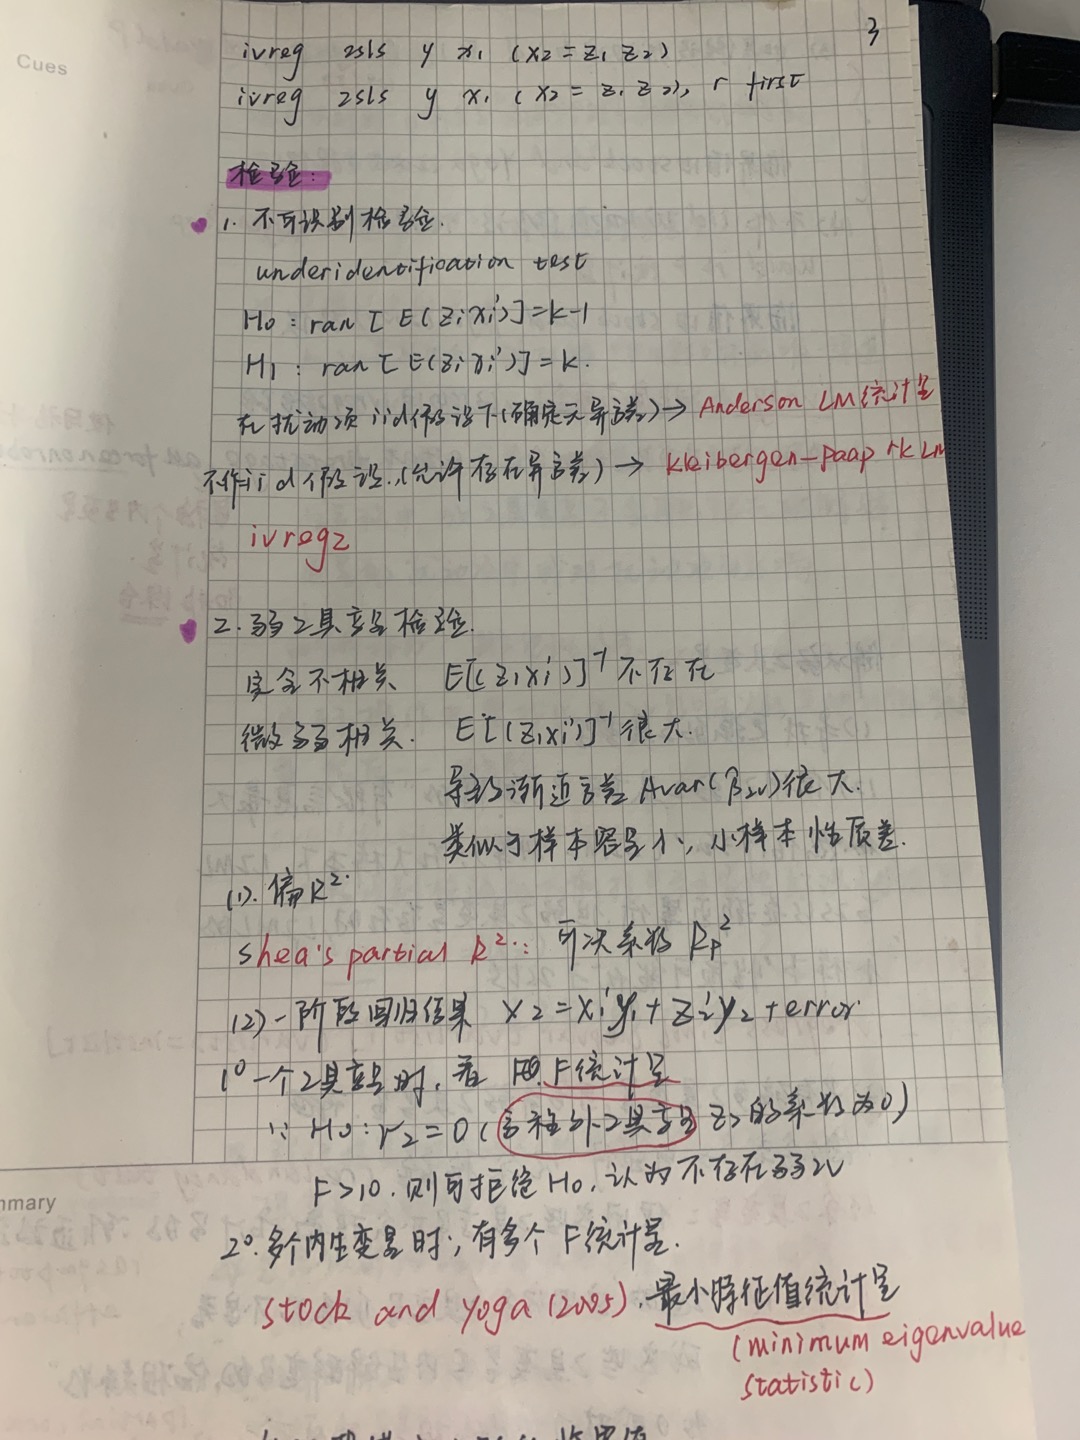 3
Cues
ivreg 2sls y x₁ (x₂ = z₁ z₂)
ivreg 2sls y x₁ (x₂ = z₁ z₂), r first
检验:
1. 不可识别检验.
underidentification test
H₀ : ran [ E(zᵢxᵢ')] = k-1
H₁ : ran [ E(zᵢxᵢ')] = k.
在扰动项iid假设下(确定无异方差) → Anderson LM统计量
不作iid假设,(允许存在异方差) → kleibergen-paap rk LM
ivreg2
2. 弱工具变量检验.
完全不相关 E[(zᵢxᵢ')]⁻¹不存在
微弱相关. E[(zᵢxᵢ')]⁻¹很大.
导致渐近方差 Avar(β₂ᵥ)很大.
类似于样本容量小, 小样本性质差.
(1). 偏R².
shea's partial R²: 可决系数 Rp²
(2) 一阶段回归结果 x₂ = x₁'γ₁ + z₂'γ₂ + error
1⁰一个工具变量时, 看 F统计量
∵ H₀: r₂ = 0 (方程外工具变量 z₂的系数为0)
F>10. 则可拒绝H₀, 认为不存在弱IV
mmary
2⁰. 多个内生变量时, 有多个F统计量.
stock and yoga (2005). 最小特征值统计量
(minimum eigenvalue
statistic)